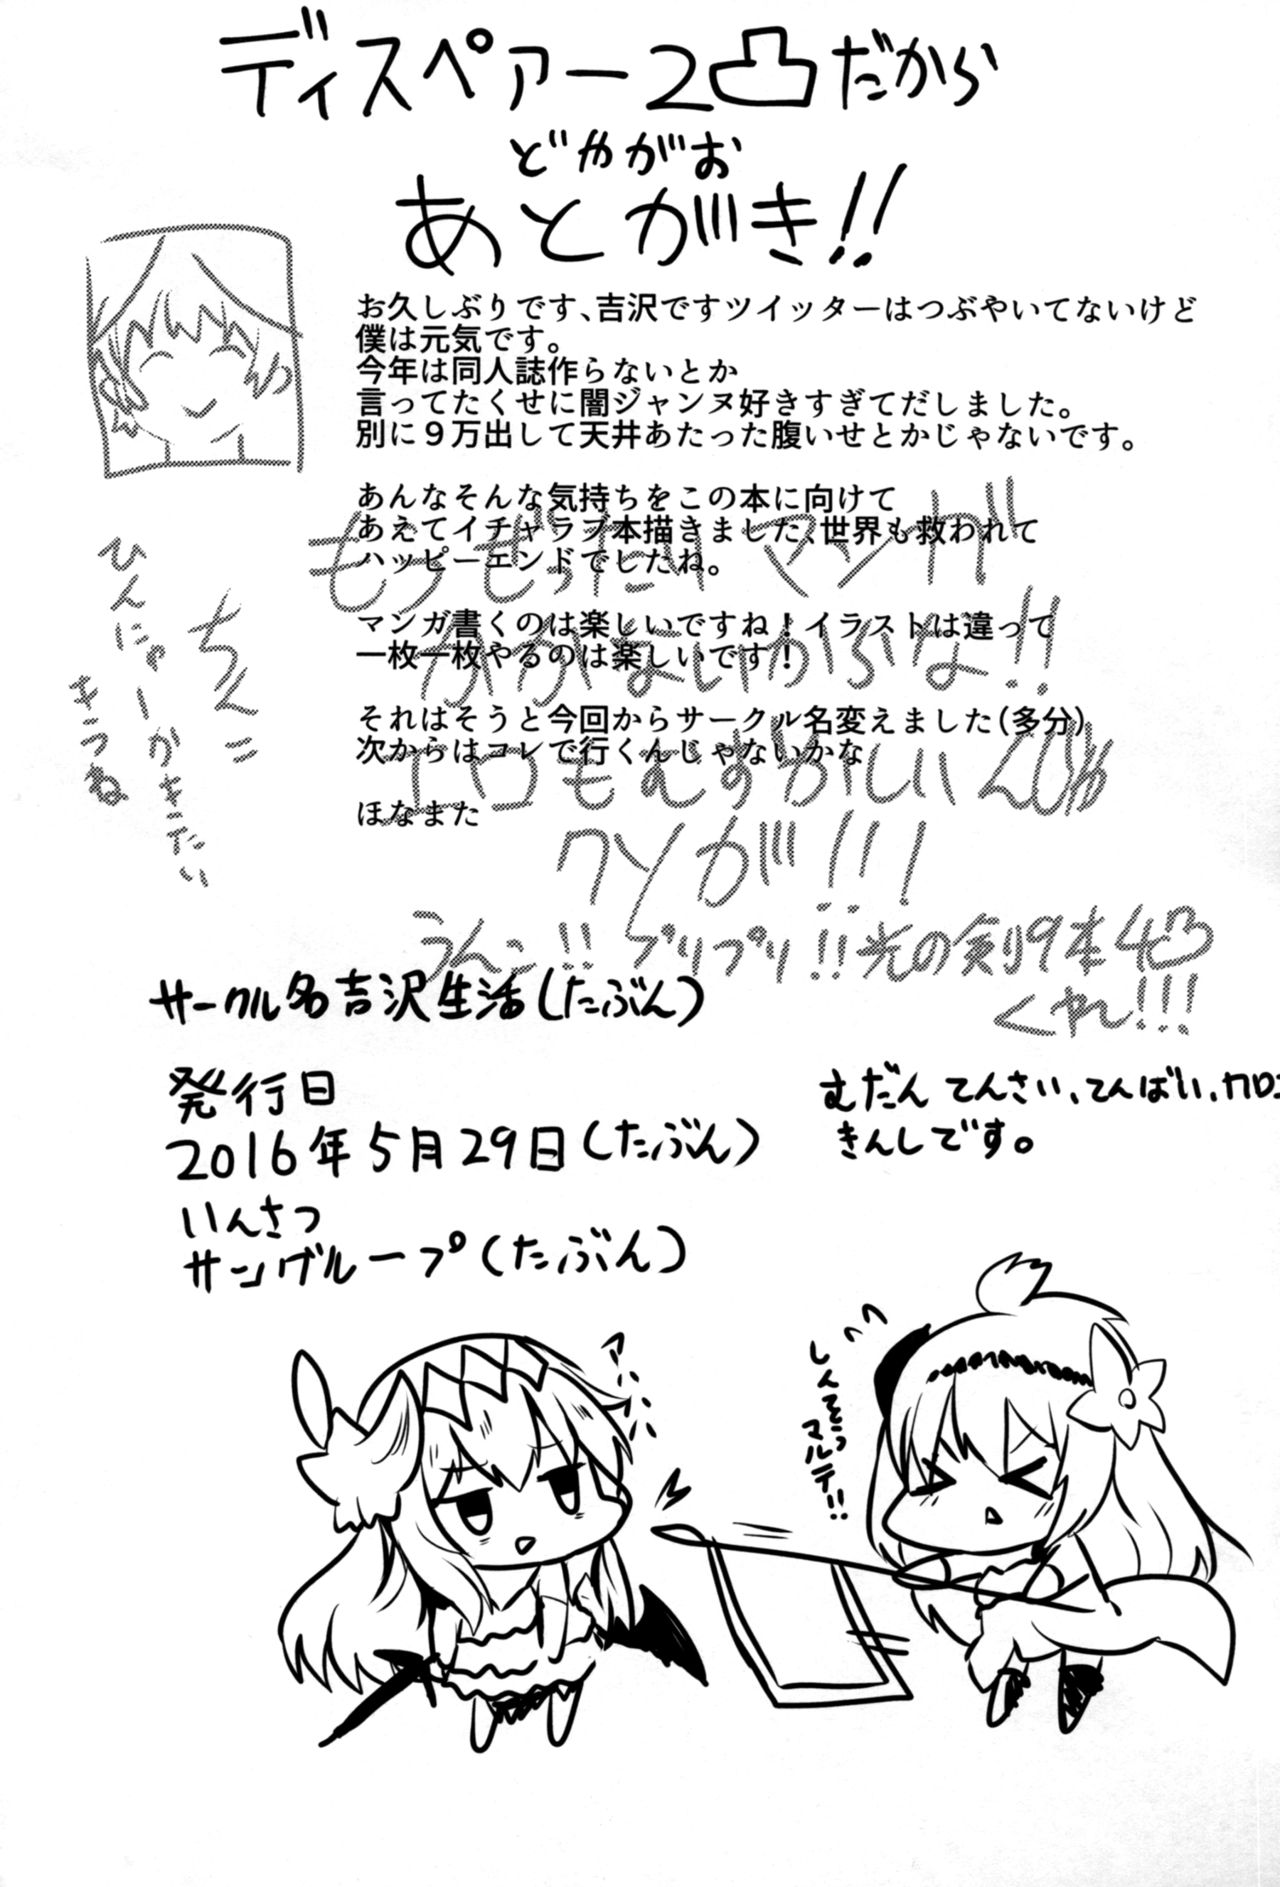 ディスペアー2凸だから
どやがお
あとがき!!
お久しぶりです、吉沢ですツイッターはつぶやいてないけど
僕は元気です。
今年は同人誌作らないとか
言ってたくせに闇ジャンヌ好きすぎてだしました。
別に９万出して天井あたった腹いせとかじゃないです。
あんなそんな気持ちをこの本に向けて
あえてイチャラブ本描きました、世界も救われて
ハッピーエンドでしたね。
マンガ書くのは楽しいですね！イラストは違って
一枚一枚やるのは楽しいです！
それはそうと今回からサークル名変えました(多分)
次からはコレで行くんじゃないかな
ほなまた
もうぜったいマンガ
かかないからな!!
エロもむずかしいんじゃ
クソが!!!
うんこ!! プリプリ!! 光の剣9本4凸
くれ!!!
ちんこ
ひんにゅーがキたい
きつね
サークル名吉沢生活(たぶん)
発行日
2016年5月29日(たぶん)
いんさつ
サングループ(たぶん)
むだん てんさい、てんばい、カロ
きんしです。
アハハハ
しんてそっ
マルテ!!